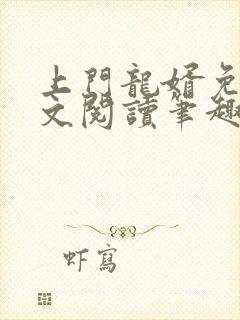 上門龍婿免
文閱讀筆趣
虾寫